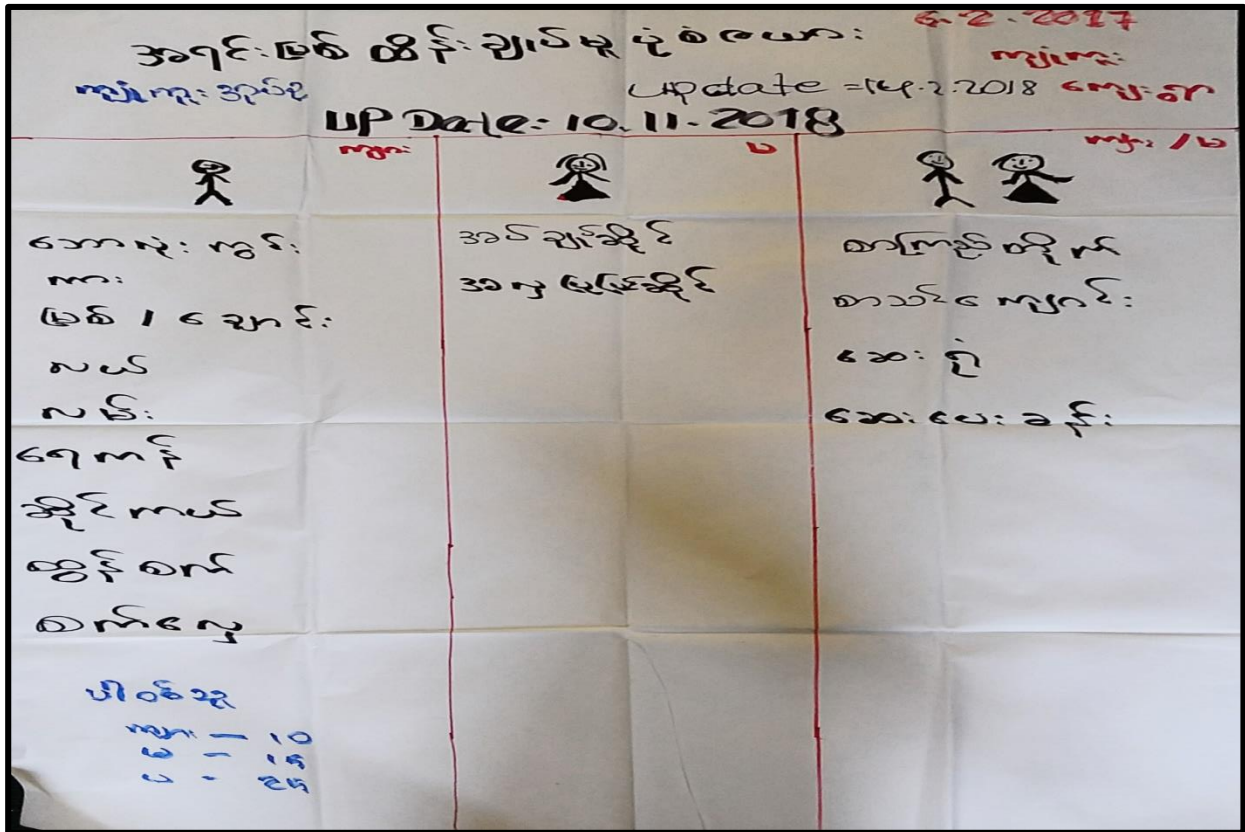 6.2.2017
အရင်းမြစ် ထိန်းချုပ်မှု ပုံစံဇယား
ကျုံကူး
ကျုံကူး အုပ်စု
update = 14.2.2018 ကျေးရွာ
UP Date: 10.11.2018
ကျား
မ
ကျား / မ
ဘောလုံးကွင်း
ကား
မြစ် / ချောင်း
လယ်
လမ်း
ရေကန်
ဆိုင်ကယ်
ထွန်စက်
စက်လှေ
အပ်ချုပ်ဆိုင်
အလှပြုပြင်ဆိုင်
စာကြည့်တိုက်
စာသင်ကျောင်း
ဆေးရုံ
ဆေးပေးခန်း
ပါဝင်သူ
ကျား — ၁၀
မ - ၁၅
ပ - ၂၅